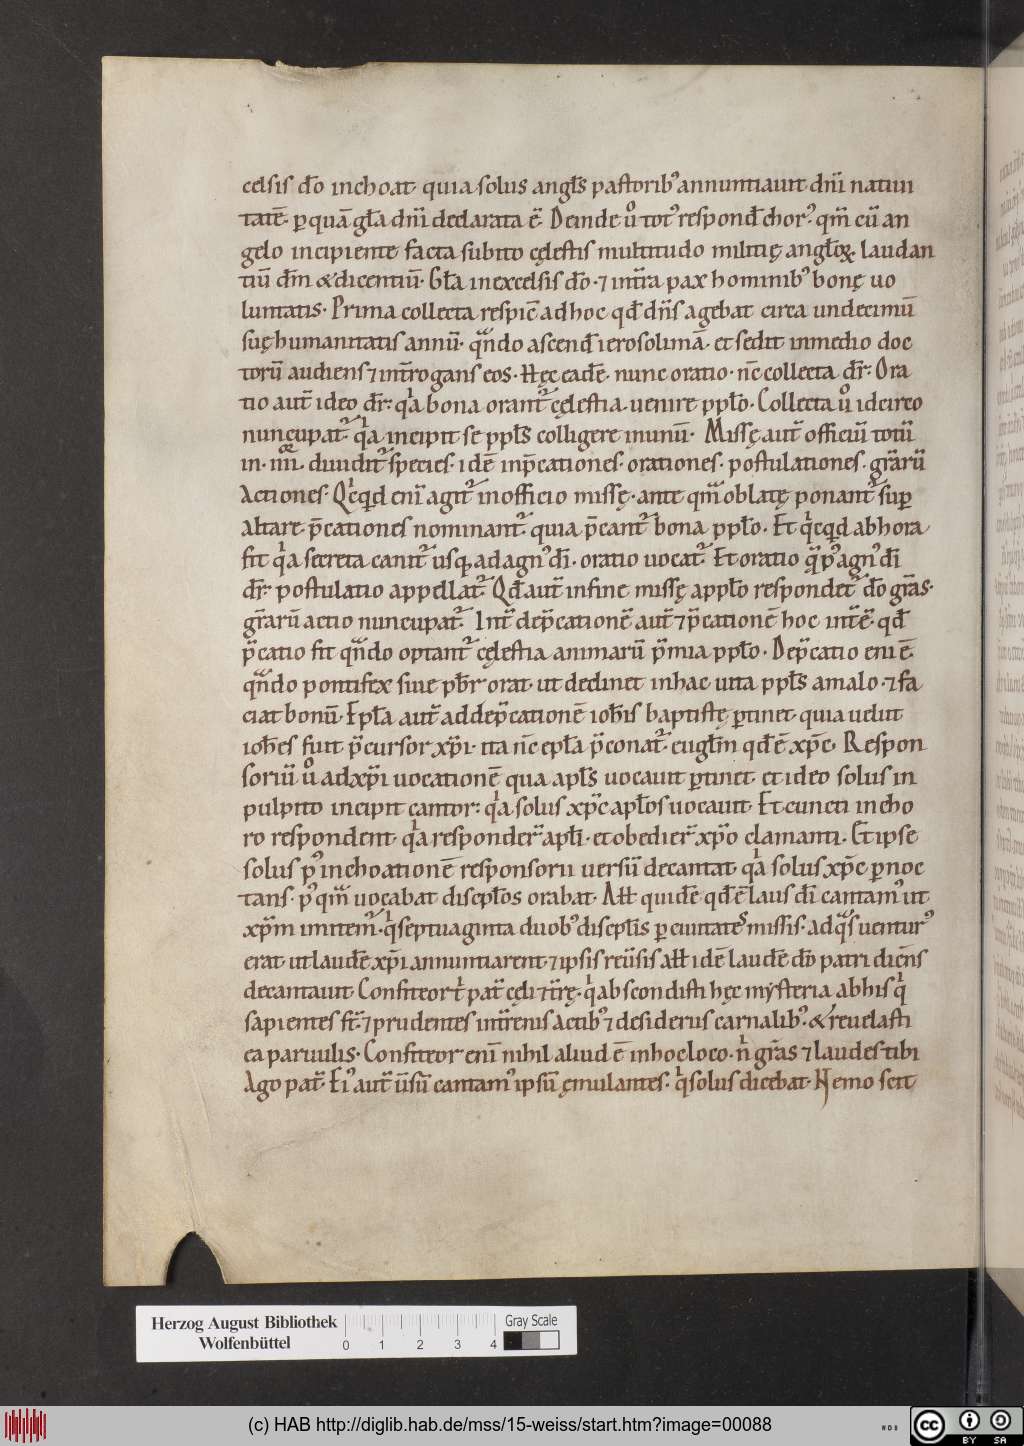 celsis do̅ inchoat· quia solus angl̅s pastorib; annuntiauit dn̅i natiui
tate̅· ꝑ qua̅ gl̅a dn̅i declarata e̅· Deinde ů tot᷒ respond̅ chor᷒· qm̅ cu̅ an
gelo incipiente facta subito cęlestis multitudo militię angl̅oꝝ laudan
tiu̅ dm̅ & dicentiu̅· Gl̅a in excelsis do̅· ⁊ in t̅ra pax hominib᷒ bonę uo
luntatis· Prima collecta respic̅ ad hoc qd̅ dn̅s agebat circa undecimu̅
suę humanitatis annu̅· qn̅do ascend̅ ierosolima̅· et sedit in medio doc
toru̅ audiens ⁊ int̅rogans eos· Hęc eade̅· nunc oratio· nc̅ collecta dr̅· Ora
tio aut̅ ideo dr̅· qͥa bona orant᷑ cęlestia uenire pplo̅· Collecta ů idcirco
nuncupat᷑· qͥa incipit se ppl̅s colligere in unu̅· Missę aut̅ officiu̅ totu̅
in· iiii· diuidit᷑ species· ide̅ in p̅cationes· orationes· postulationes· gr̅aru̅
Actiones· Qͥcqͥd eni̅ agit᷑ in officio missę· ante qua̅ oblatę ponant᷑ suꝑ
altare p̅cationes nominant᷑· quia p̅cant᷑ bona pplo̅· Et qͥcqͥd ab hora
fit qͥa secreta canit᷑ usqꝫ ad agn᷒ di̅· oratio uocat᷑· Et oratio q̅ p᷒ agn᷒ di̅
dr̅· postulatio appellat᷑· Qd̅ aut̅ in fine missę a pplo̅ respondet᷑ do̅ gr̅as·
gr̅aru̅ actio nuncupat᷑· Int̅ dep̅catione̅ aut̅ ⁊ p̅catione̅ hoc int̅e̅· qd̅
p̅catio fit qn̅do optant᷑ cęlestia animaru̅ p̅mia pplo̅· Dep̅catio eni e̅·
qn̅do pontifex siue pb̅r orat· ut declinet in hac uita ppl̅s a malo· ⁊ fa
ciat bonu̅· Epl̅a aut̅ ad dep̅catione̅ ioh̅is baptistę ꝑtinet· quia uelut
ioh̅es fuit p̅cursor xp̅i· ita nc̅ epl̅a p̅conat᷑· eugl̅m qd̅ e̅ xp̅c· Respon
soriu̅ ů ad xp̅i uocatione̅ qua apl̅s uocauit ꝑtinet· et ideo solus in
pulpito incipit cantor· qͥa solus xp̅c aplo̅s uocauit· Et cuncti in cho
ro respondent· qͥa responder̅ apl̅i· et obedier̅ xp̅o clamanti· Et ipse
solus p᷒ inchoatione̅ responsorii uersu̅ decantat· qͥa solus xp̅c ꝑnoc
tans· p᷒ qm̅ uocabat discplo̅s orabat· All̅ quide̅ qd̅ e̅ laus di̅ cantam᷒ ut
xp̅m imitem᷑· qͥ septuaginta duob᷒ discpl̅is ꝑ ciuitates missis· ad qͣs uentur᷒
erat ut laude̅ xp̅i annuntiarent ⁊ ipsis reu̅sis all̅ ide̅ laude̅ do̅ patri dice̅s
decantauit· Confiteor tͥ pat̅ cęli ⁊ t̅rę· qͥ abscondisti hęc mysteria ab his qͥ
sapientes st̅· ⁊ prudentes in t̅renis actib᷒ ⁊ desideriis carnalib᷒· & reuelasti
ea paruulis· Confiteor eni̅ nihil aliud e̅ in hoc loco· nͥ gr̅as ⁊ laudes tibi
Ago pat̅· Ei᷒ aut̅ u̅su̅ cantam᷒ ipsu̅ ęmulantes· qͥ solus dicebat· Nemo scit
Herzog August Bibliothek
Wolfenbüttel
0 1 2 3 4
Gray Scale
(c) HAB http://diglib.hab.de/mss/15-weiss/start.htm?image=00088
cc BY SA